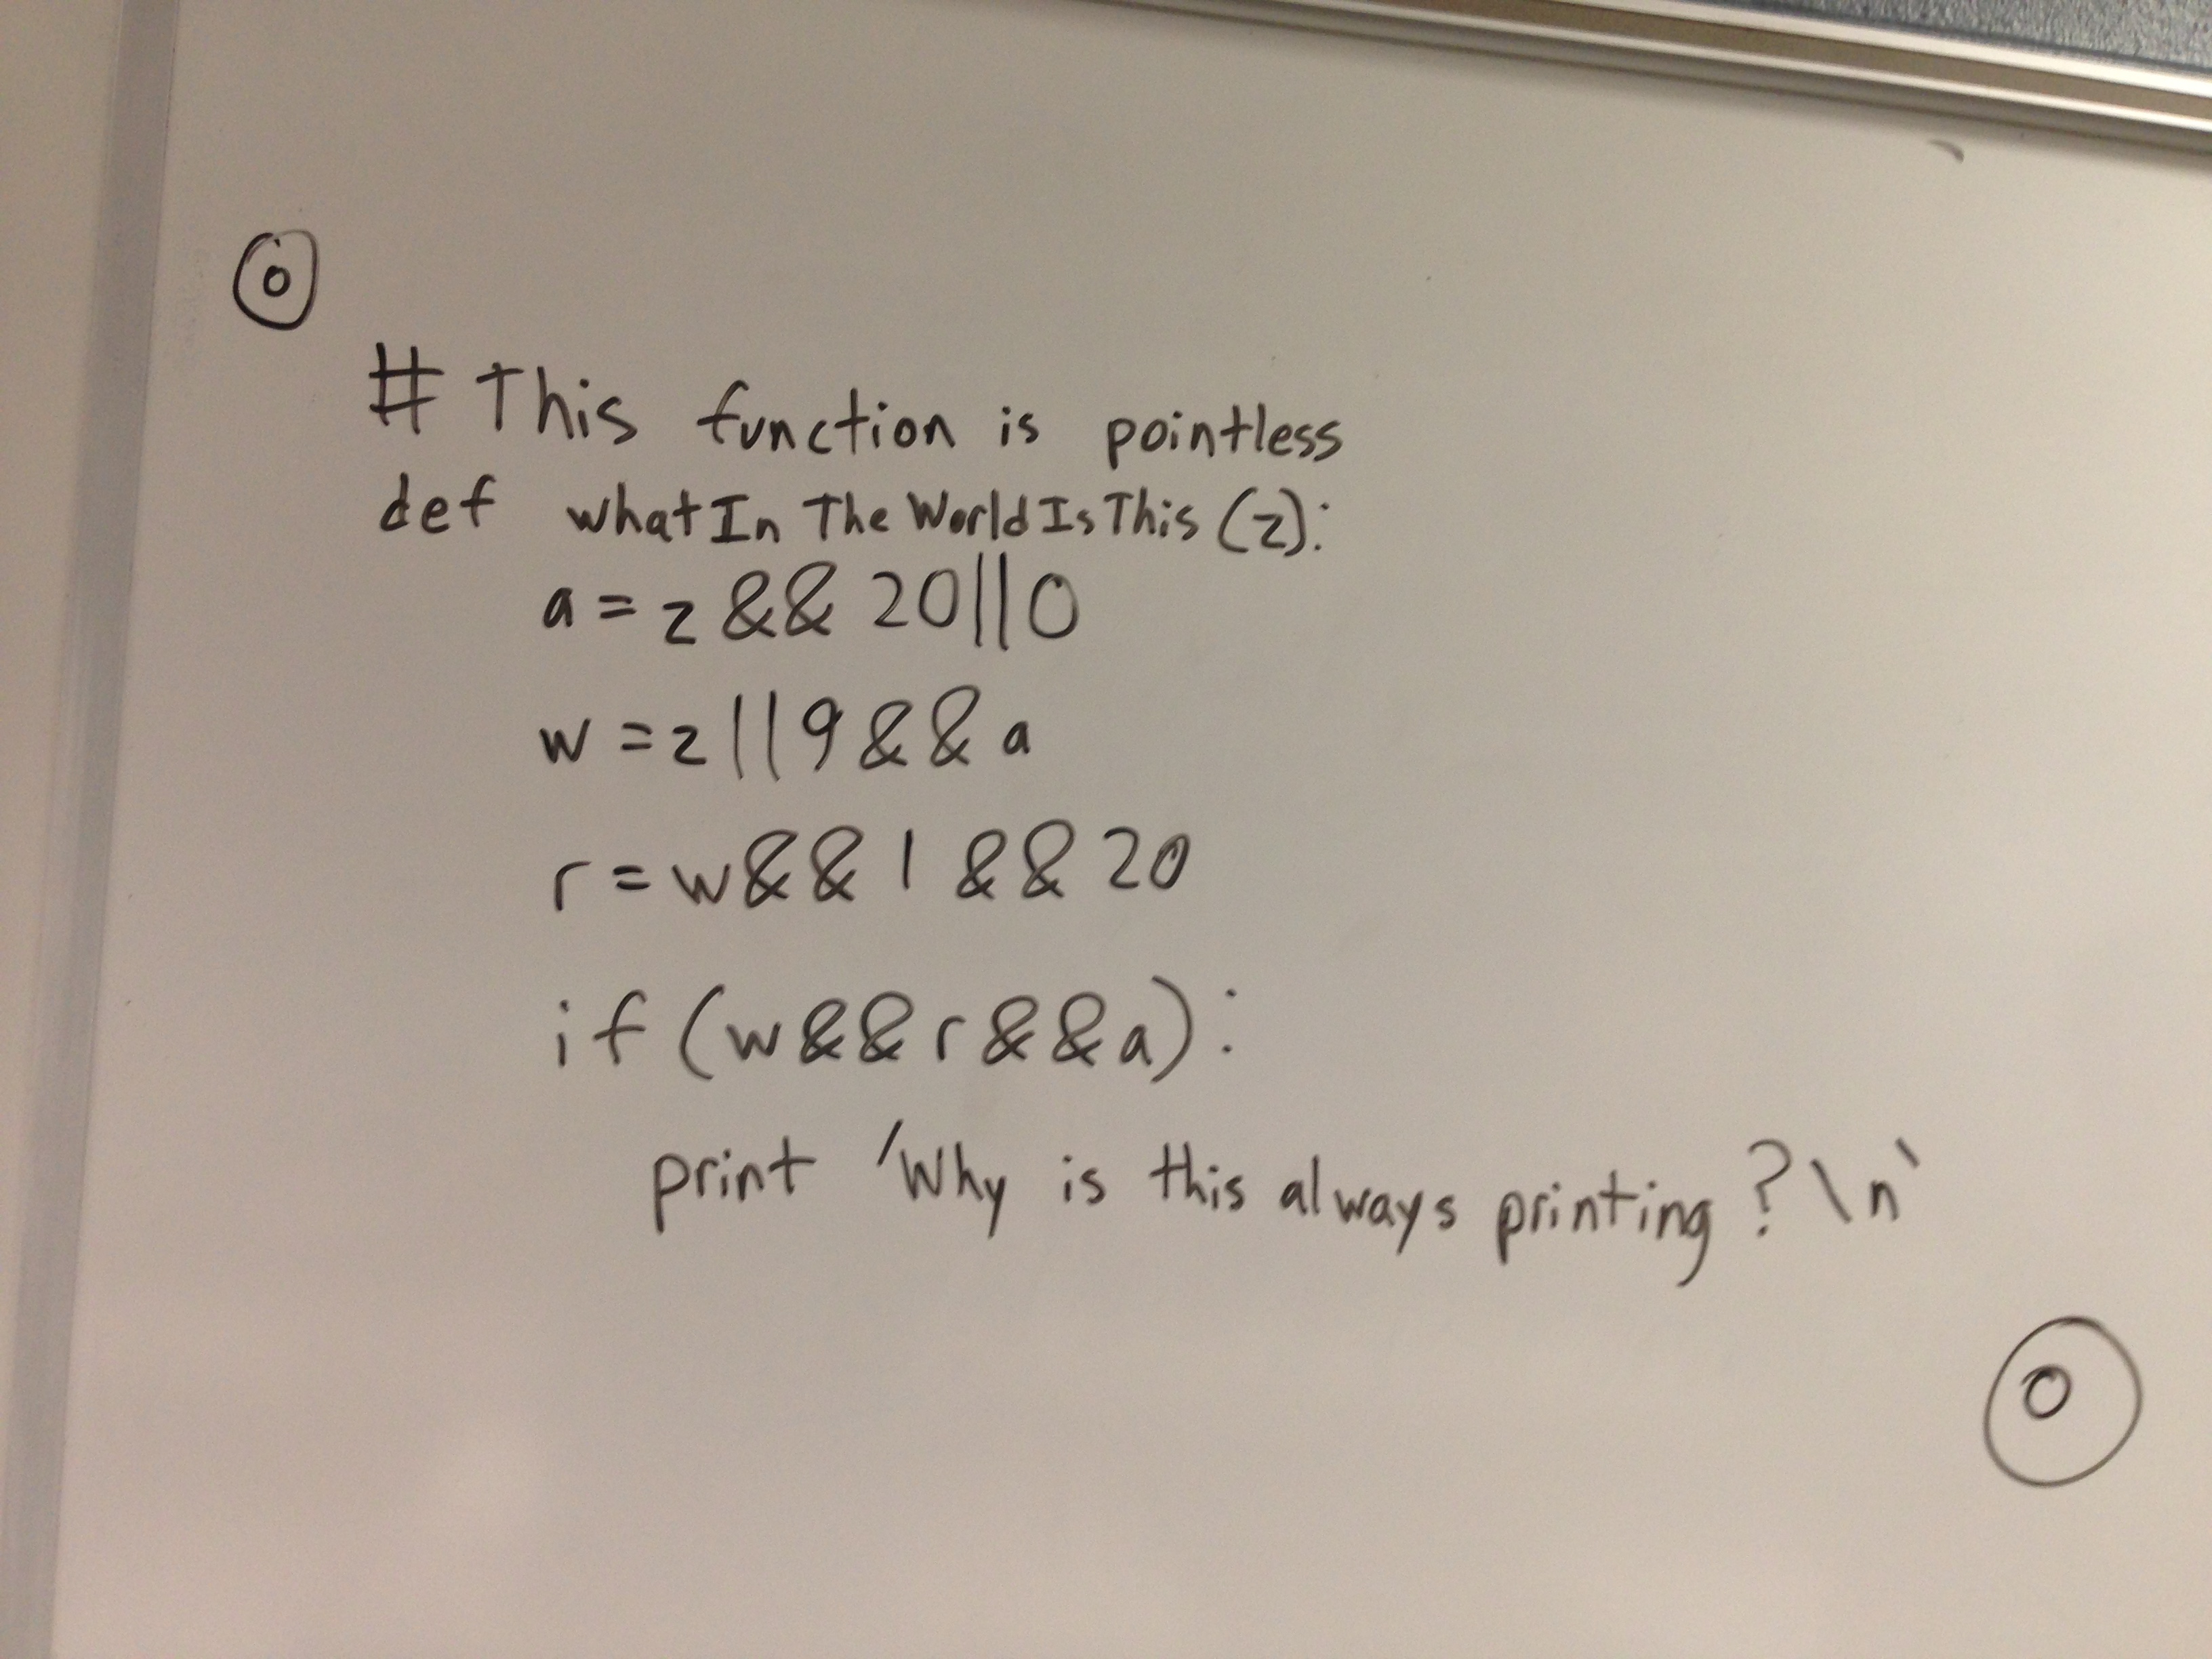 0
# This function is pointless
def whatInTheWorldIsThis(z):
a=z&&20||0
w=z||9&&a
r=w&&1&&20
if(w&&r&&a):
print 'Why is this always printing?\n'
0